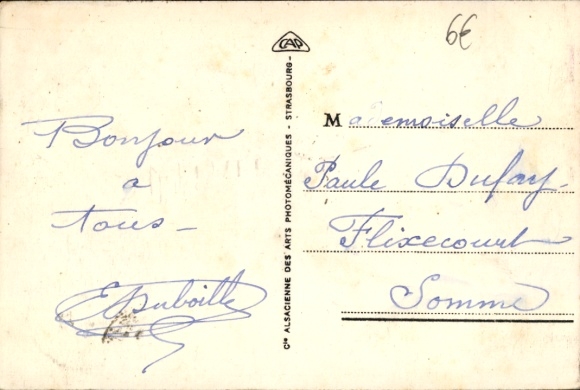 6€
Bonjour
a
tous -
CAP
Cie ALSACIENNE DES ARTS PHOTOMÉCANIQUES - STRASBOURG -
Mademoiselle
Paule Dufay
Flixecourt
Somme